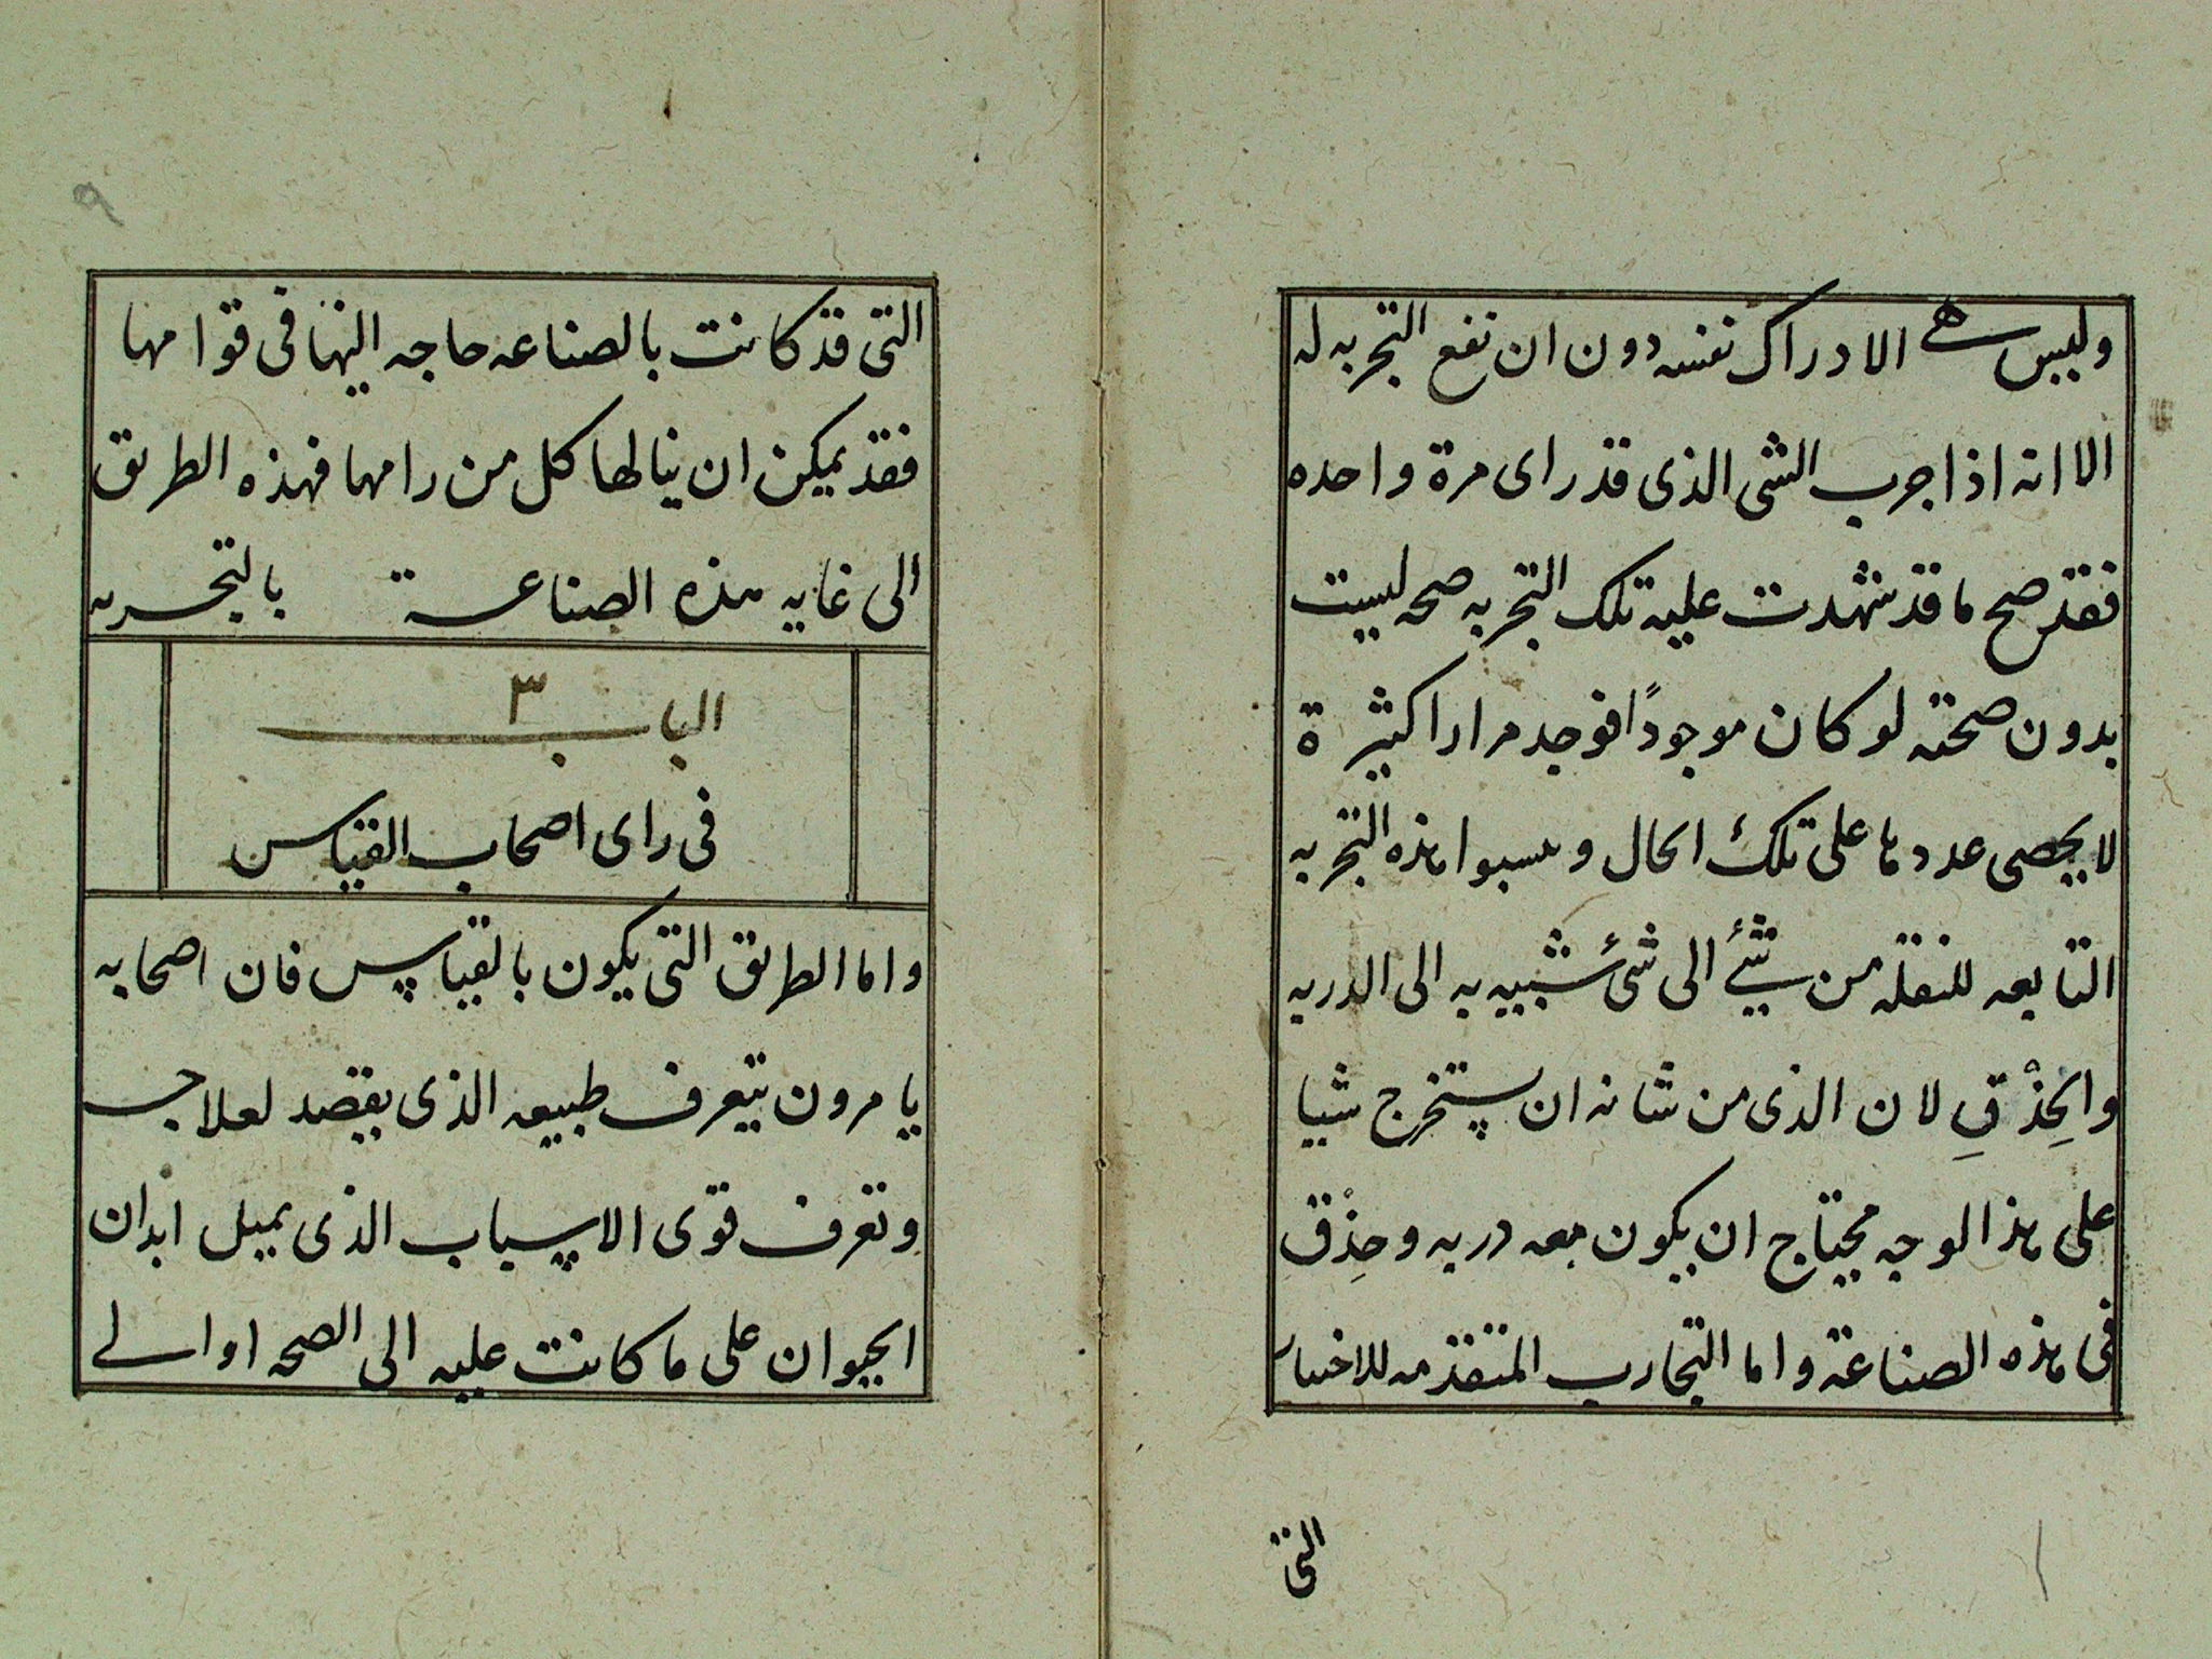 وليس هى الادراك نفسه دون ان تقع التجربه له
الا انه اذا جرب الشى الذى قد راى مرة واحده
فقد صح ما قد شهدت عليه تلك التجربه صحه ليست
بدون صحته لو كان موجودًا فوجد مرارا كثيرة
لا يحصى عددها على تلك الحال و نسبوا هذه التجربه
التابعه للنقله من شئ الى شئ شبيه به الى الدربه
والحِذْقِ لان الذى من شانه ان يستخرج شيا
على هذا الوجه محتاج ان يكون معه دربه وحِذْق
فى هذه الصناعة واما التجارب المتقدمه للاختبار
التى
٩
التى قد كانت بالصناعه حاجه اليها فى قوامها
فقد يمكن ان ينالها كل من رامها فهذه الطريق
الى غايه هذه الصناعة بالتجربه
الباب ٣
فى راى اصحاب القياس
واما الطريق التى يكون بالقياس فان اصحابه
يامرون بتعرف طبيعه الذى يقصد لعلاجه
وتعرف قوى الاسباب الذى يميل ابدان
الحيوان على ما كانت عليه الى الصحه او الى